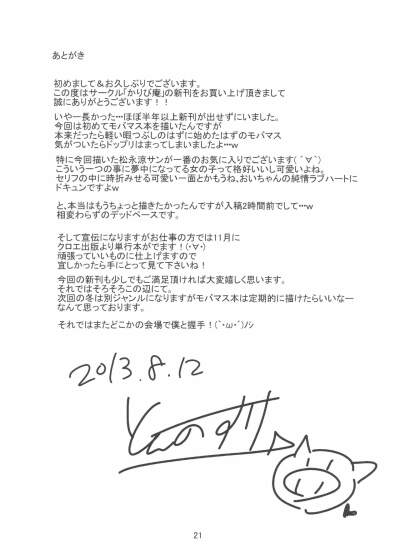 あとがき
初めまして＆お久しぶりでございます。
この度はサークル「かりび庵」の新刊をお買い上げ頂きまして
誠にありがとうございます！！
いやー長かった…ほぼ半年以上新刊が出せずにいました。
今回は初めてモバマス本を描いたんですが
本来だったら軽い暇つぶしのはずに始めたはずのモバマス
気がついたらドップリはまってしまいましたよ…w
特に今回描いた松永涼サンが一番のお気に入りでございます(´∀`)
こういう一つの事に夢中になってる女の子って格好いいし可愛いよね。
セリフの中に時折みせる可愛い一面とかもうね、おいちゃんの純情ラブハートに
ドキュンですよw
と、本当はもうちょっと描きたかったんですが入稿2時間前でして…w
相変わらずのデッドペースです。
そして宣伝になりますがお仕事の方では11月に
クロエ出版より単行本がでます！(・∀・)
頑張っていいものに仕上げますので
宜しかったら手にとって見て下さいね！
今回の新刊も少しでもご満足頂ければ大変嬉しく思います。
それではそろそろこの辺にて。
次回の冬は別ジャンルになりますがモバマス本は定期的に描けたらいいなー
なんて思っております。
それではまたどこかの会場で僕と握手！(`･ω･´)ﾉｼ
2013.8.12
21